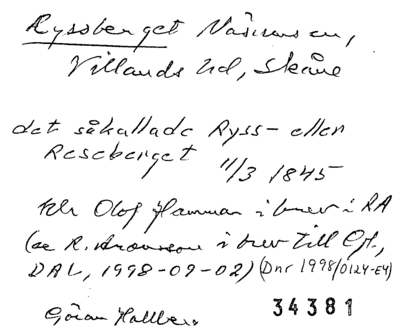 Ryssberget Näsum sn,
Villands hd, Skåne
det såkallade Ryss- eller
Reseberget 11/3 1845
Olof Hammar i brev i RA
(se R. Aronsson i brev till
DAL, 1998-09-02) (Dnr 1998/0124-E4)
Göran Hallberg
34381